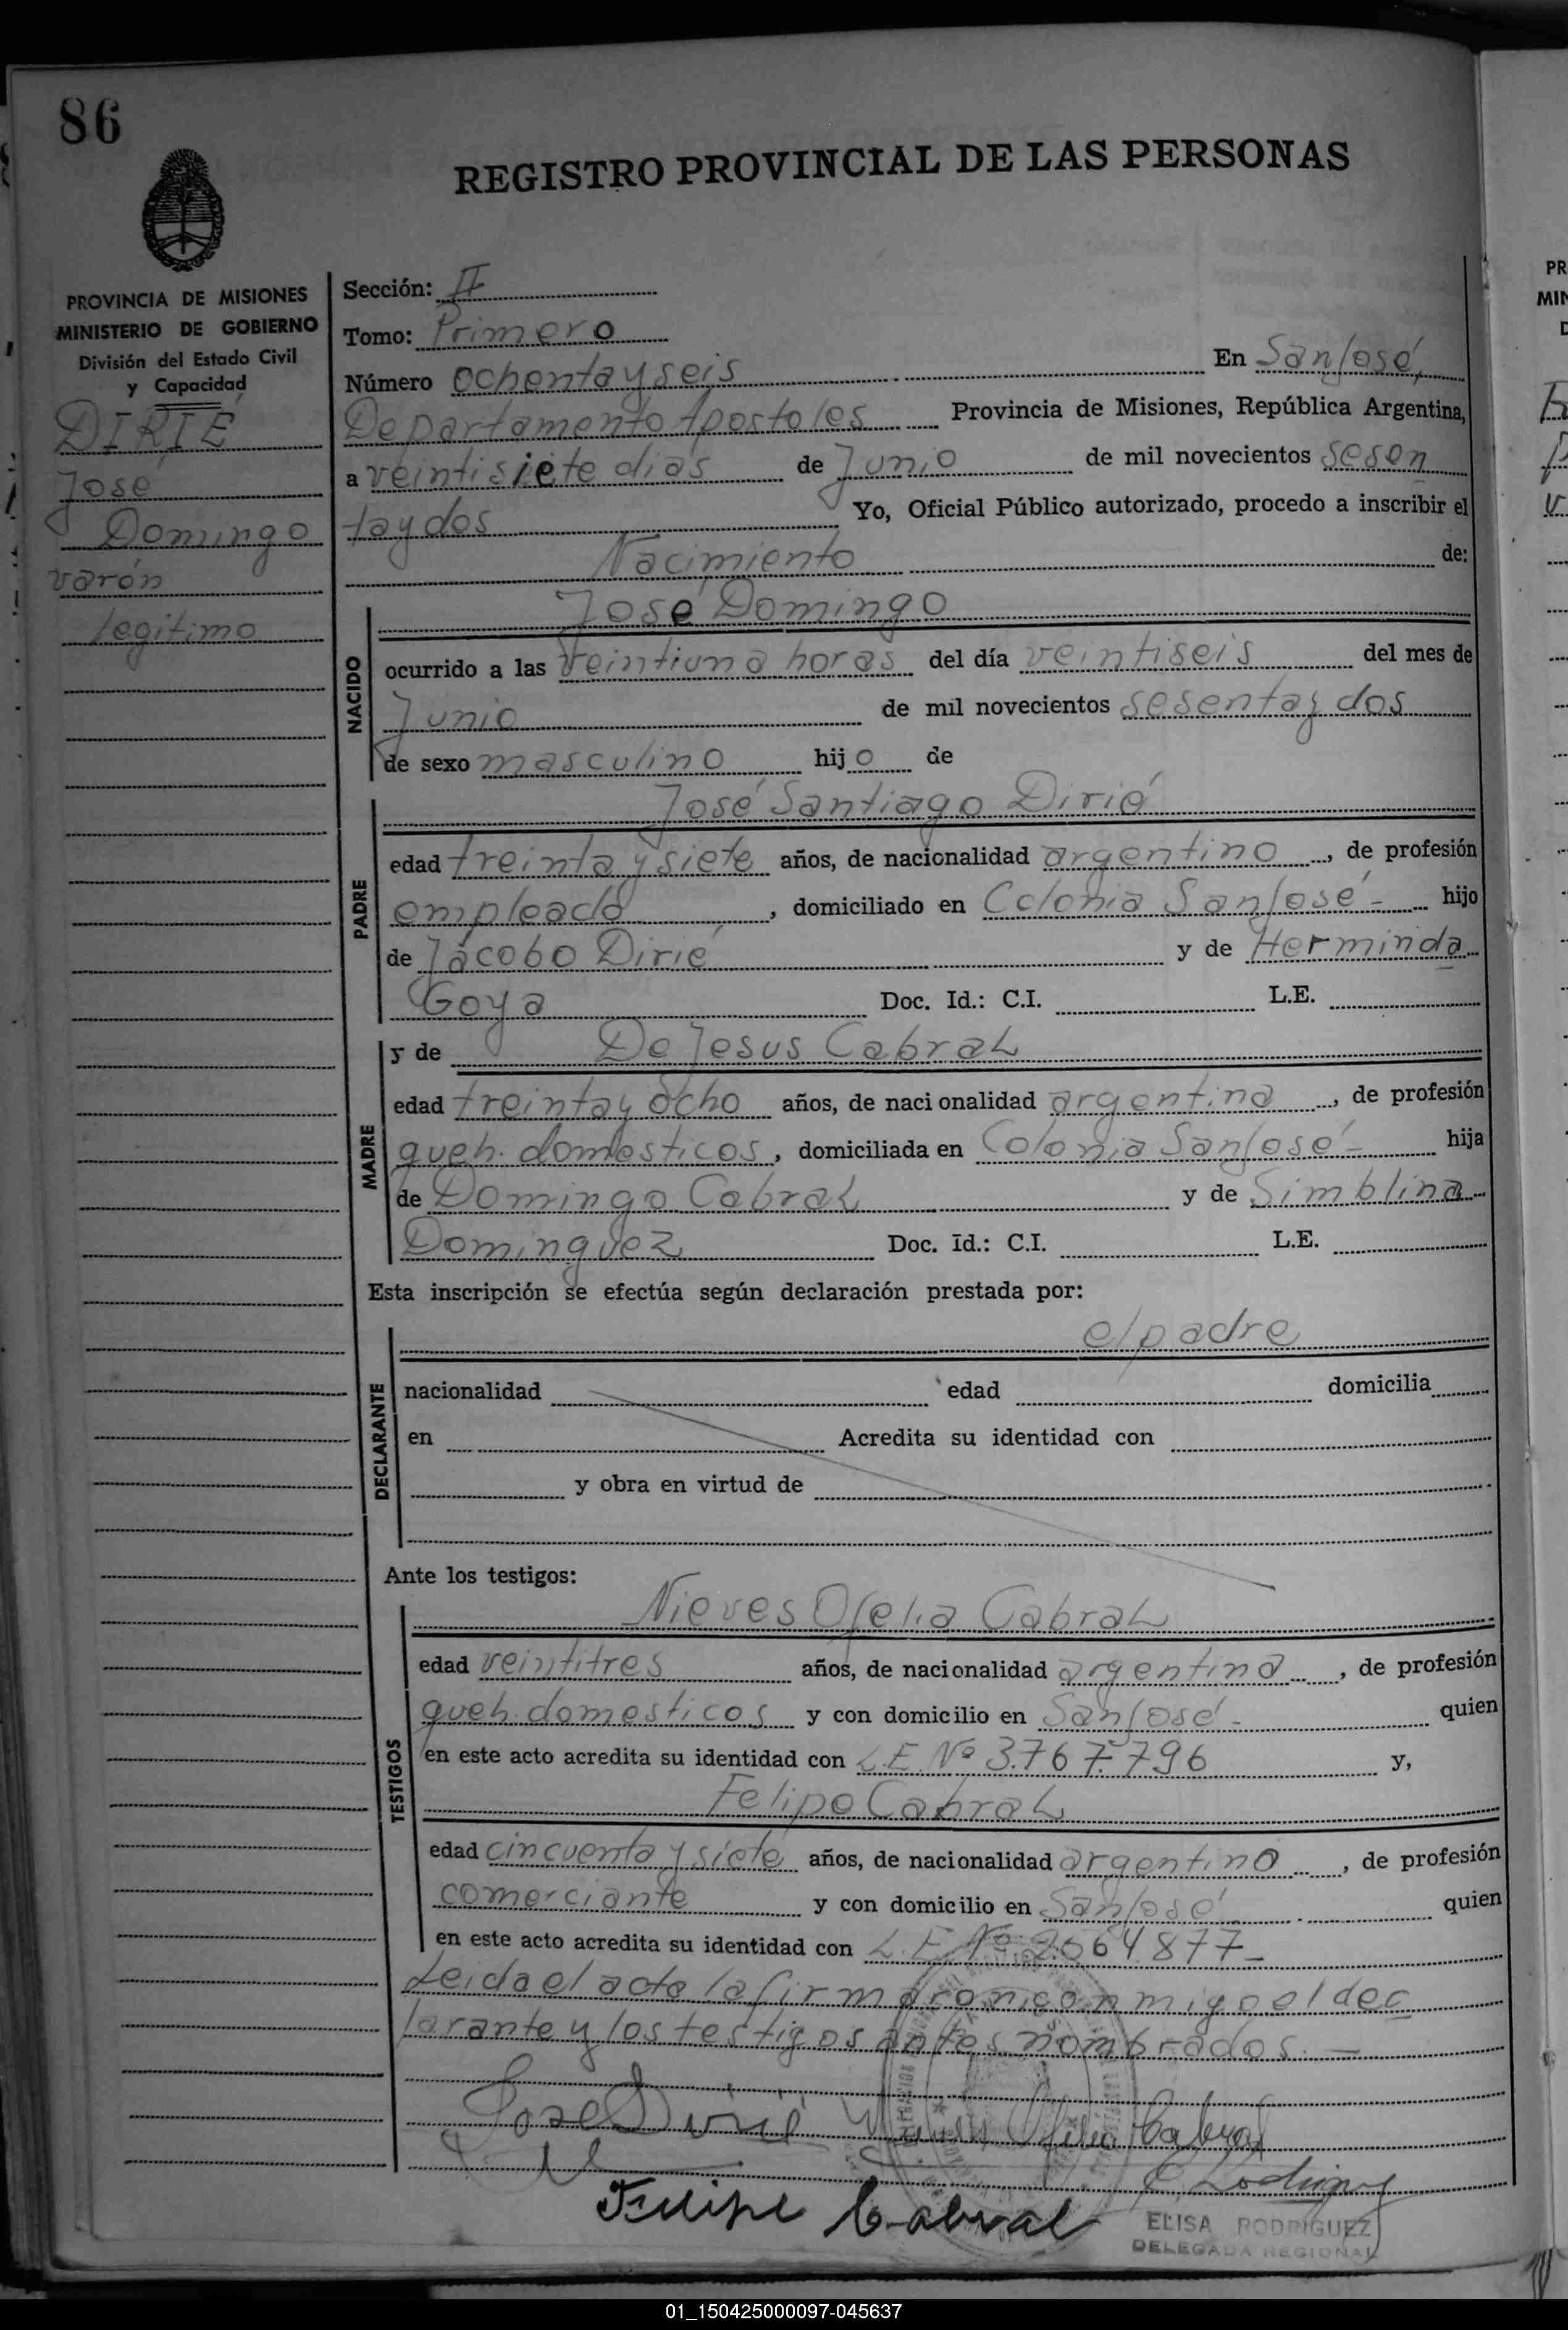 86
REGISTRO PROVINCIAL DE LAS PERSONAS
PROVINCIA DE MISIONES
MINISTERIO DE GOBIERNO
División del Estado Civil
y Capacidad
DIRIÉ
José
Domingo
varón
legítimo
Sección: II
Tomo: Primero
Número ochenta y seis En San José,
Departamento Apostoles Provincia de Misiones, República Argentina,
a veintisiete días de Junio de mil novecientos sesen
ta y dos Yo, Oficial Público autorizado, procedo a inscribir el
Nacimiento de:
NACIDO
José Domingo
ocurrido a las veintiuna horas del día veintiseis del mes de
Junio de mil novecientos sesenta y dos
de sexo masculino hijo de
PADRE
José Santiago Dirié
edad treinta y siete años, de nacionalidad argentino, de profesión
empleado, domiciliado en Colonia San José - hijo
de Jacobo Dirié y de Herminda
Goya Doc. Id.: C.I. L.E.
MADRE
y de De Jesus Cabral
edad treinta y ocho años, de nacionalidad argentina, de profesión
queh. domésticos, domiciliada en Colonia San José - hija
de Domingo Cabral y de Simblina
Dominguez Doc. Id.: C.I. L.E.
Esta inscripción se efectúa según declaración prestada por:
DECLARANTE
el padre
nacionalidad edad domicilia
en Acredita su identidad con
y obra en virtud de
Ante los testigos:
TESTIGOS
Nieves Ofelia Cabral
edad veintitres años, de nacionalidad argentina, de profesión
queh. domesticos y con domicilio en San José - quien
en este acto acredita su identidad con L.E. Nº 3.767.796 y,
Felipe Cabral
edad cincuenta y siete años, de nacionalidad argentino, de profesión
comerciante y con domicilio en San José quien
en este acto acredita su identidad con L.E. Nº 2.064.877 -
Leida el acta la firmaron conmigo el dec
larante y los testigos antes nombrados. —
Jose Dirié Nieves Ofelia Cabral
Felipe Cabral E. Rodriguez
ELISA RODRIGUEZ
DELEGADA REGIONAL
PR
MIN
D
01_150425000097-045637